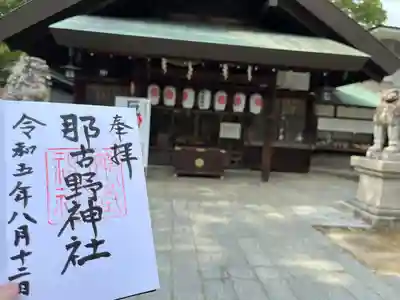 奉拝
那古野神社
令和五年八月十二日